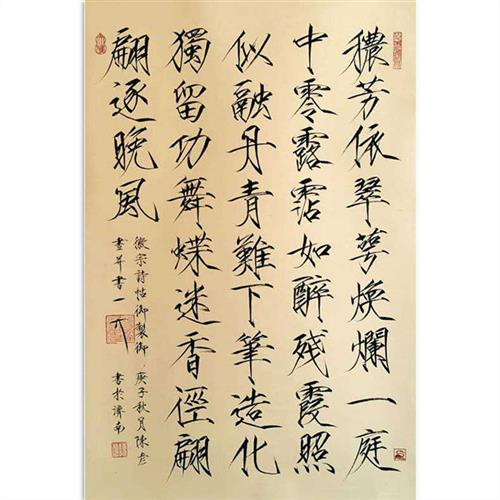 穠芳依翠萼煥爛一庭
中零露霑如醉殘霞照
似融丹青難下筆造化
獨留功舞蝶迷香徑翩
翩逐晚風
徽宗詩帖御製御
畫并書一
庚子秋月陳彥
書於濟南